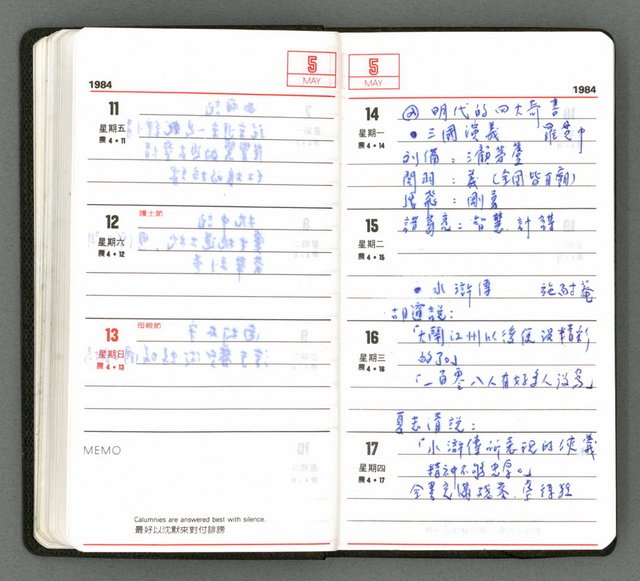 5
MAY
1984
11
星期五
農4•11
護士節
12
星期六
農4•12
母親節
13
星期日
農4•13
MEMO
Calumnies are answered best with silence.
最好以沈默來對付誹謗
5
MAY
1984
14
星期一
農4•14
② 明代的四大奇書
• 三國演義 羅貫中
劉備：三顧茅蘆
関羽：義(全国皆有廟)
張飛：剛勇
15
星期二
農4•15
諸葛亮：智慧.計謀
• 水滸傳 施耐菴
胡適說：
16
星期三
農4•16
「大鬧江州以後便沒精彩
了。」
「一百零八人有好多人沒寫」
夏志清說：
17
星期四
農4•17
「水滸傳所表現的俠義
精神不夠忠厚。」
全書充滿